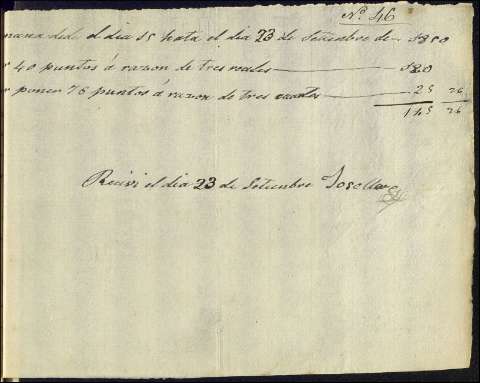 Nº 46
mana desde el dia 15 hata el dia 23 de Setiembre de
r 40 puntos á razon de tres reales
r poner 76 puntos á razon de tres 25 26
145 26
Recivi el dia 23 de Setiembre Jose